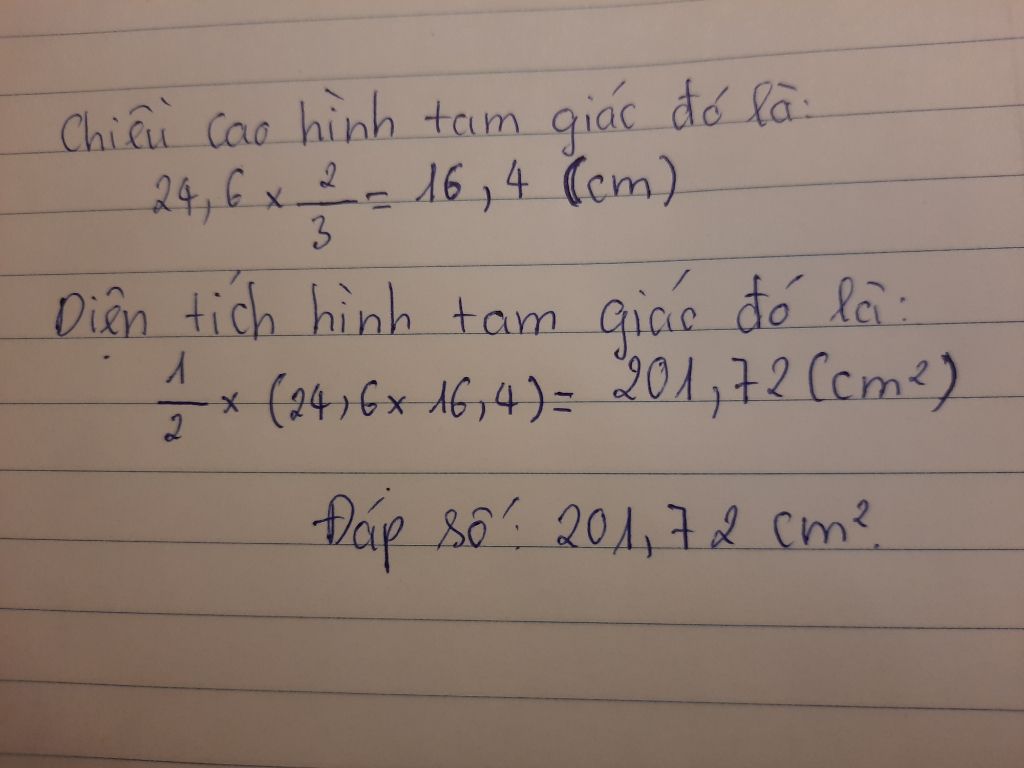 Chiều cao hình tam giác đó là:
24,6 × 2/3 = 16,4 (cm)
Diện tích hình tam giác đó là:
1/2 × (24,6 × 16,4) = 201,72 (cm²)
Đáp số: 201,72 cm².